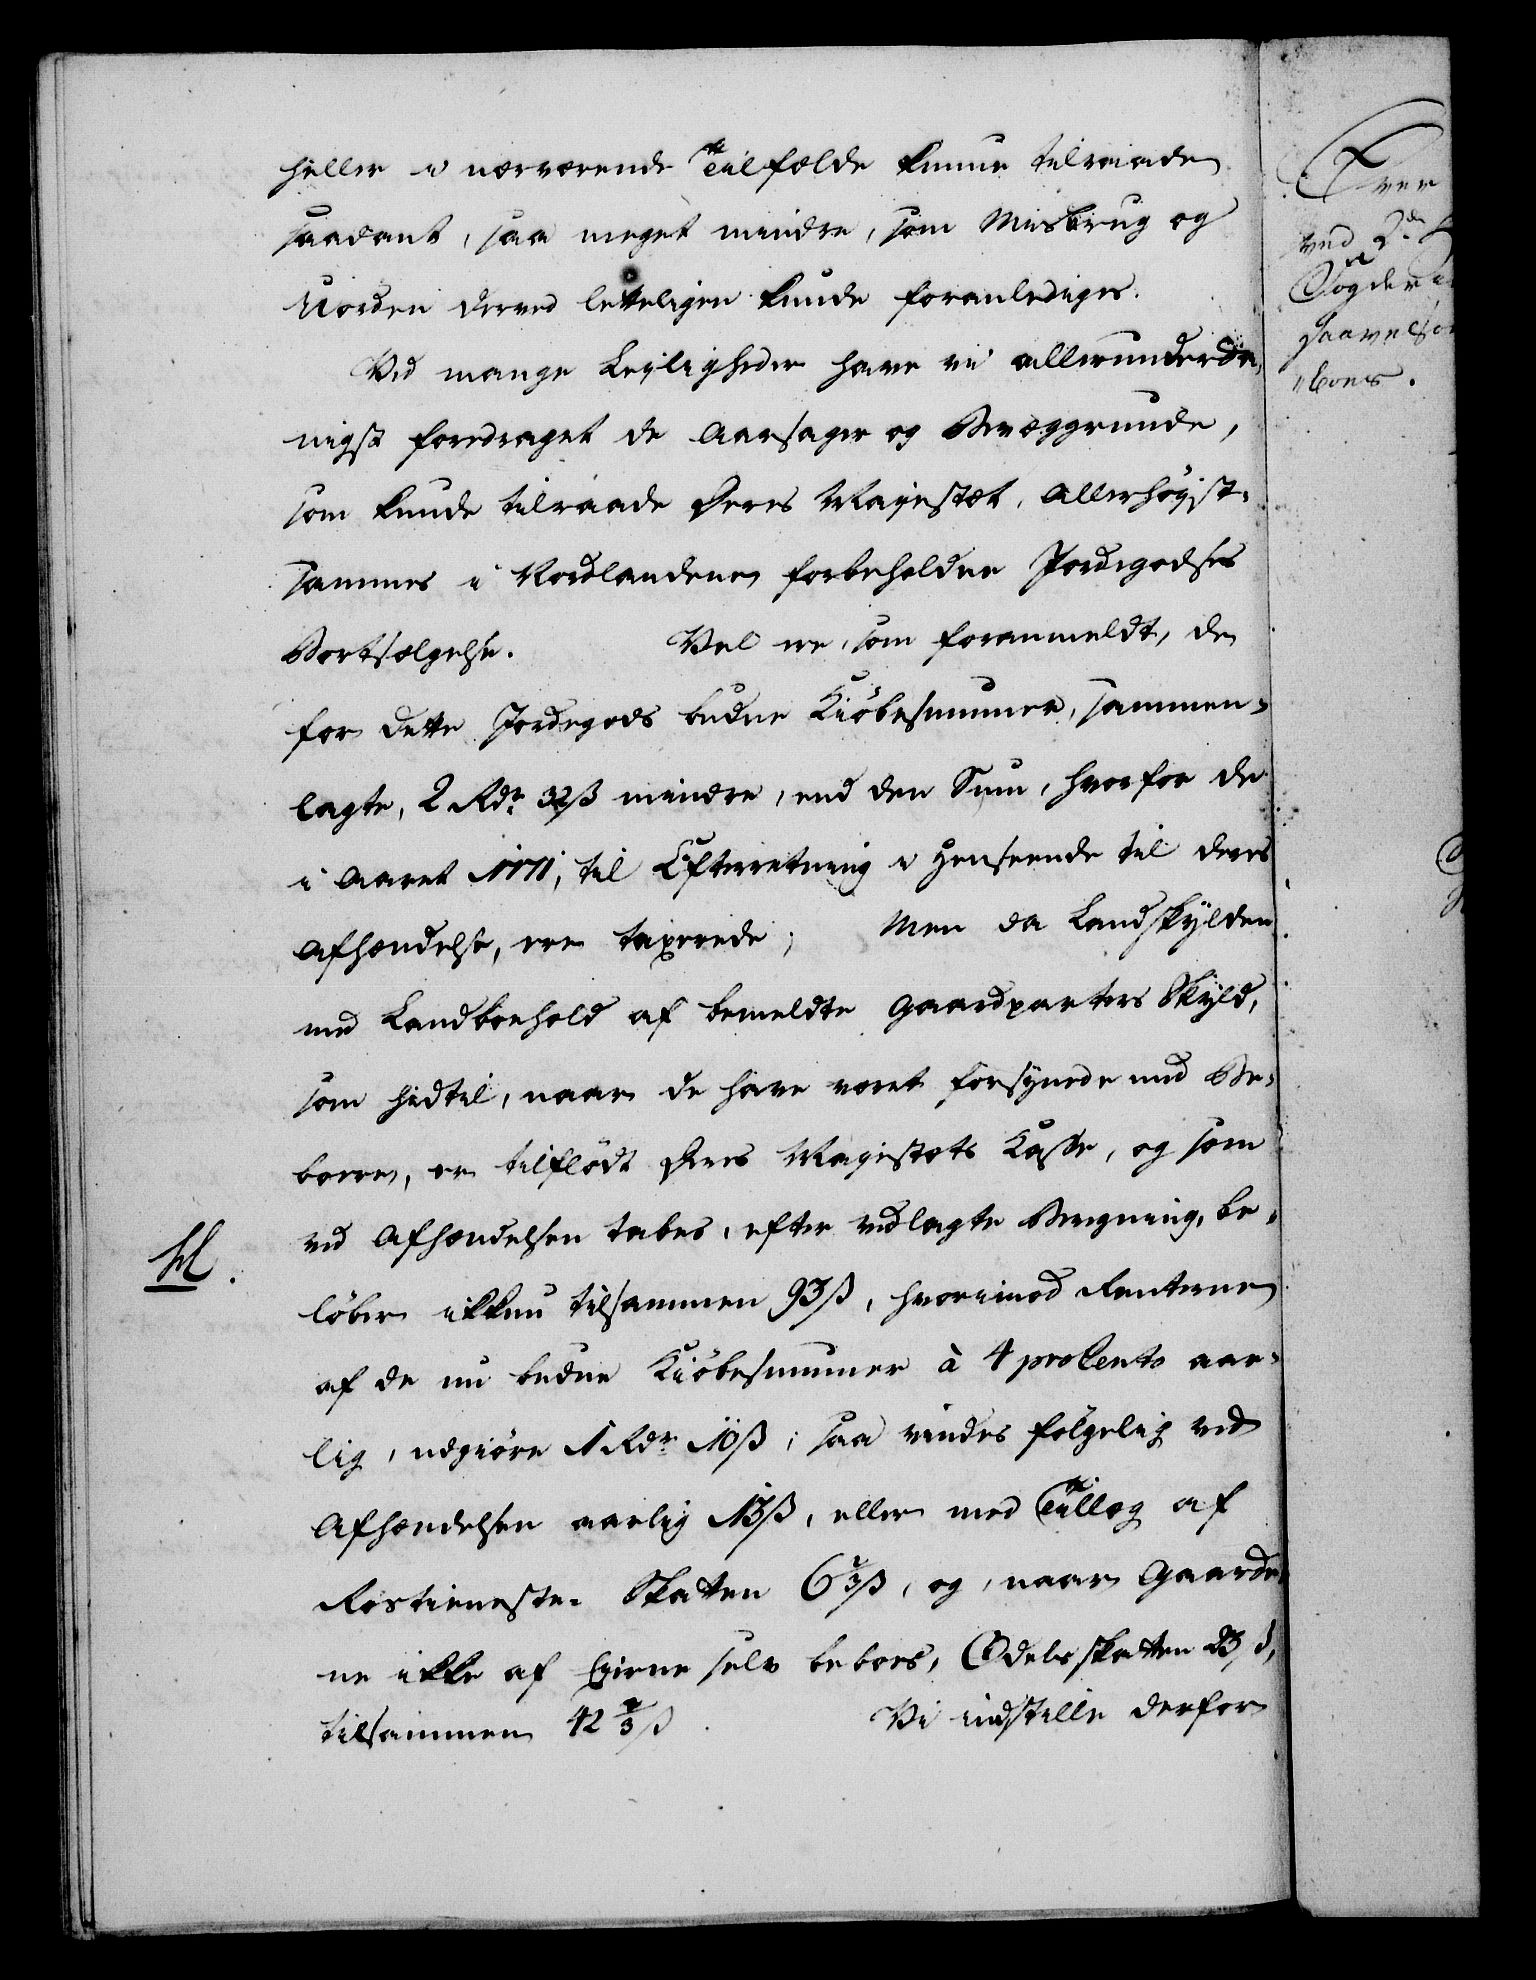 heller i nærværende Tilfælde kunne tilraade
saadant, saa meget mindre, som Misbrug og
Uorden derved letteligen kunde foranlediges.
Ved mange Leyligheder have vi allerunderda,
nigst foredraget de Aarsager og Bevæggrunde,
som kunde tilraade Deres Majestæt, Allerhøyst-
sammes i Nordlandene forbeholdne Jordegodses
Bortsælgelse. Vel ere, som foranmeldt, de
for dette Jordegods budne Kiöbesummer, sammen-
lagte, 2 Rdr 32 ß mindre, end den Sum, hvorfor de
i Aaret 1771, til Efterretning i Henseende til deres
Afhændelse, ere taxerede; Men da Landskylden
med Landboehold af bemeldte Gaardparters Skyld,
som hidtil, naar de have været forsynede med Be-
boere, er tilflödt Deres Majestæts Kasse, og som
ved Afhændelsen tabes, efter vedlagte Beregning, be-
M.
löber ikkun tilsammen 93 ß, hvorimod Renterne
af de nu budne Kiöbesummer à 4 proCento aar-
lig, udgiöre 1 Rdr 10 ß; saa vindes fölgelig ved
Afhændelsen aarlig 13 ß, eller med Tillæg af
Rostieneste-Skatten 6 2/3 ß, og, naar Gaarde,
ne ikke af Eierne selv beboes, Odelsskatten 23 ß,
tilsammen 42 2/3 ß. Vi indstille derfor
ved 2de
Fogder